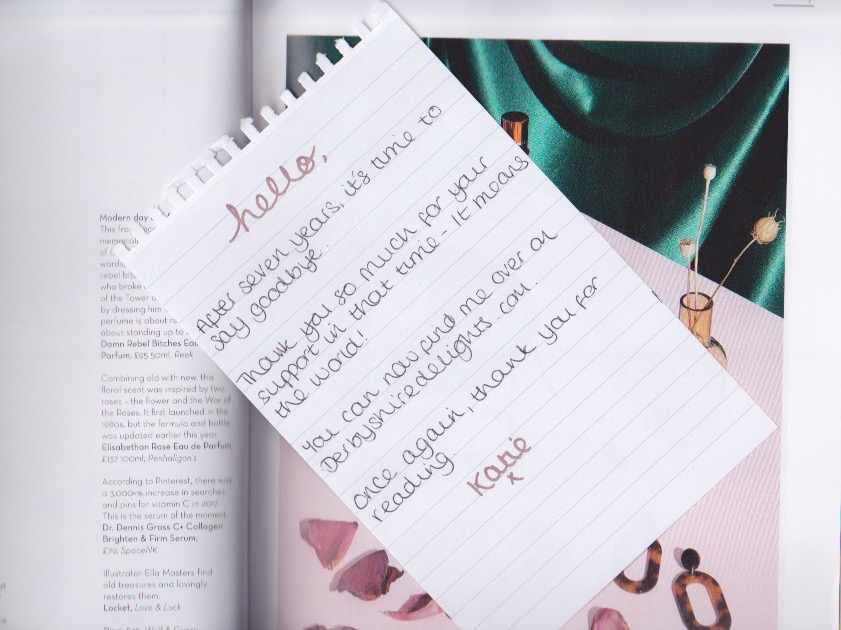 Modern day
This fra
memorial
of
words,
rebel bit
who broke
of the Tower o
by dressing him
perfume is about r
about standing up to
Damn Rebel Bitches Eau
Parfum, £95 50ml, Reek
Combining old with new, this
floral scent was inspired by two
roses – the flower and the War of
the Roses. It first launched in the
1980s, but the formula and bottle
was updated earlier this year.
Elisabethan Rose Eau de Parfum,
£137 100ml, Penhaligon's
According to Pinterest, there was
a 3,000+% increase in searches
and pins for vitamin C in 2017.
This is the serum of the moment.
Dr. Dennis Gross C+ Collagen
Brighten & Firm Serum,
£79, SpaceNK
Illustrator Ella Masters find
old treasures and lovingly
restores them.
Locket, Love & Luck
hello,
After seven years, it's time to
say goodbye.
Thank you so much for your
support in that time - It means
the world!
You can now find me over on
Derbyshiredelights.com.
Once again, thank you for
reading.
Katie
x